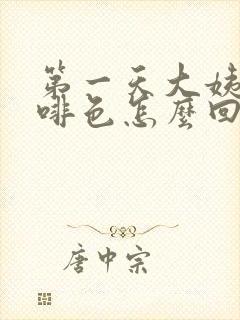 第一天大姨
啡色怎麼回
唐中宗